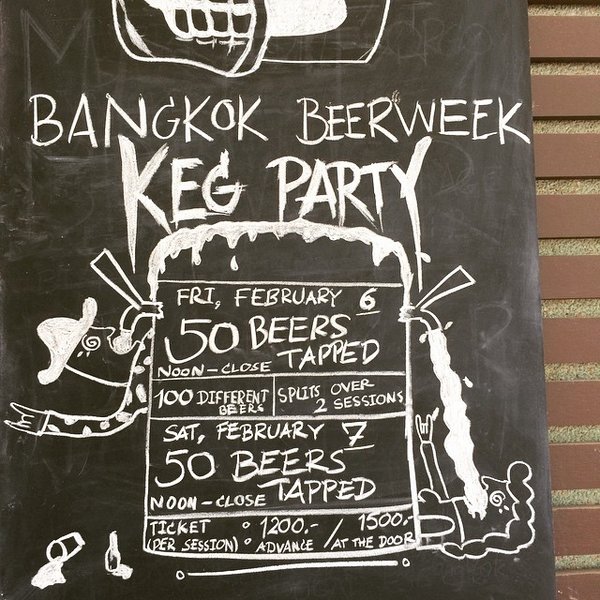 BANGKOK BEERWEEK
KEG PARTY
FRI, FEBRUARY 6
50 BEERS
TAPPED
NOON-CLOSE
100 DIFFERENT
BEERS
SPLITS OVER
2 SESSIONS
SAT, FEBRUARY 7
50 BEERS
TAPPED
NOON-CLOSE
TICKET : 1200.- / 1500.-
(PER SESSION) ADVANCE / AT THE DOOR